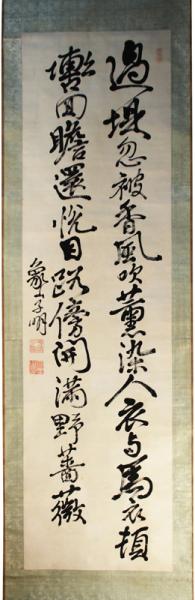 過堤忽被香風吹薰染人衣与馬衣頓
回瞻還悦目路傍開満野薔薇
象山子明